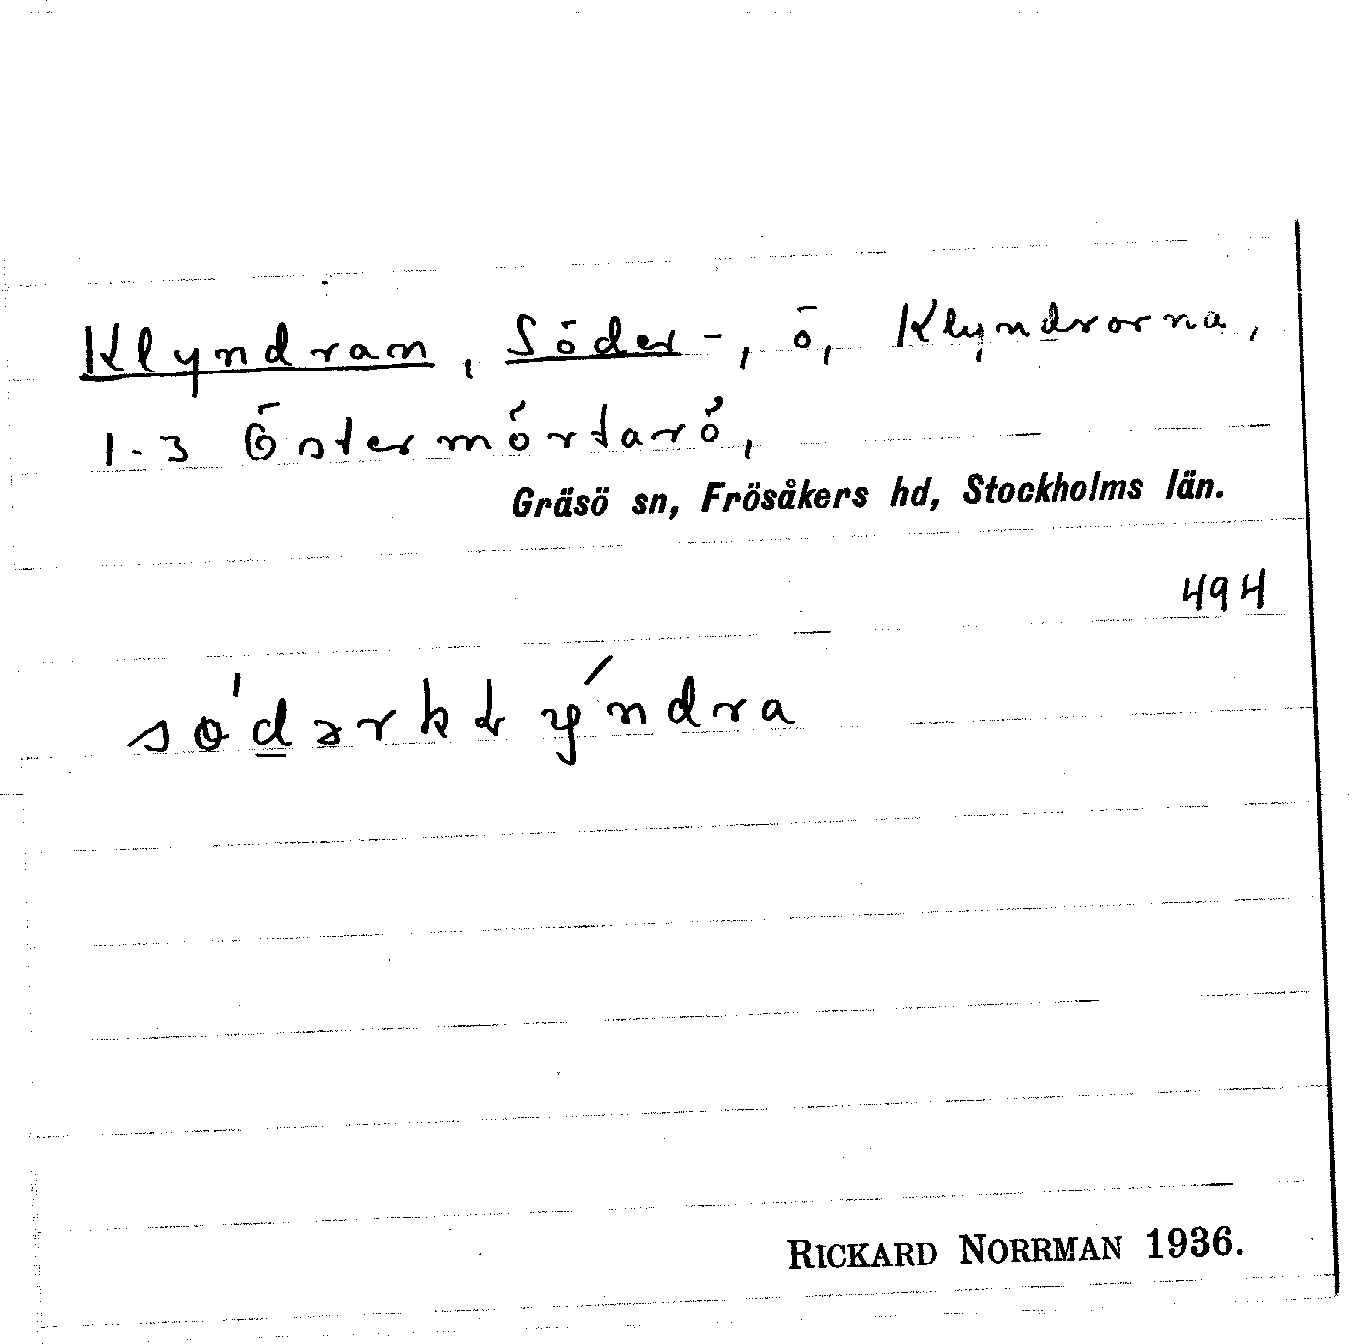 Klyndran, Söder-, ö, Klyndrorna,
1-3 Östermörtarö,
Gräsö sn, Frösåkers hd, Stockholms län.
494
RICKARD NORRMAN 1936.